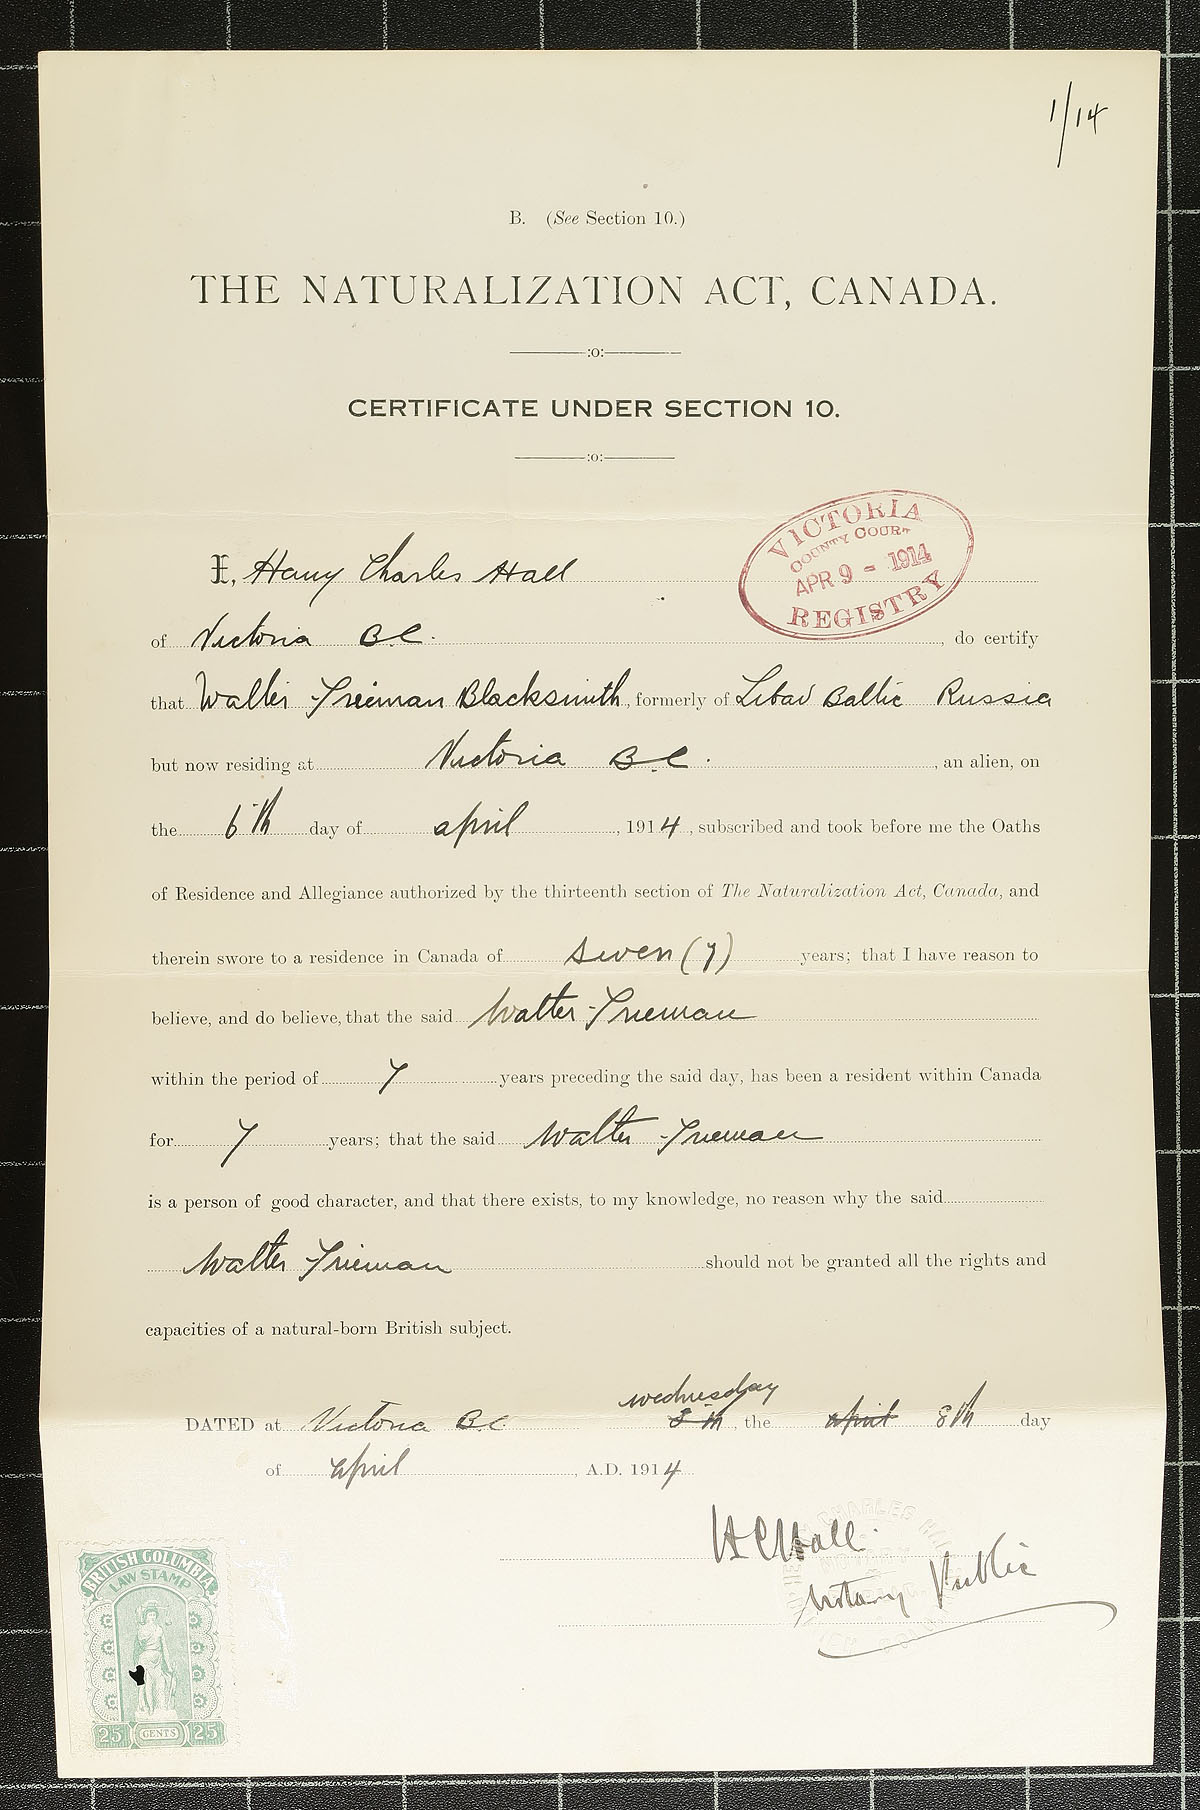 1/14
B. (See Section 10.)
THE NATURALIZATION ACT, CANADA.
:o:
CERTIFICATE UNDER SECTION 10.
:o:
VICTORIA
COUNTY COURT
APR 9 - 1914
REGISTRY
I, Harry Charles Hall
of Victoria B.C. , do certify
that Walter Frieman Blacksmith, formerly of Libau Baltic Russia
but now residing at Victoria B.C. , an alien, on
the 6th day of april , 1914 , subscribed and took before me the Oaths
of Residence and Allegiance authorized by the thirteenth section of The Naturalization Act, Canada, and
therein swore to a residence in Canada of seven (7) years; that I have reason to
believe, and do believe, that the said Walter Frieman
within the period of 7 years preceding the said day, has been a resident within Canada
for 7 years; that the said Walter Frieman
is a person of good character, and that there exists, to my knowledge, no reason why the said
Walter Frieman should not be granted all the rights and
capacities of a natural-born British subject.
wednesday
DATED at Victoria B.C 8th, the april 8th day
of april , A.D. 1914
HCHall.
Notary Public
BRITISH COLUMBIA
LAW STAMP
25 CENTS 25